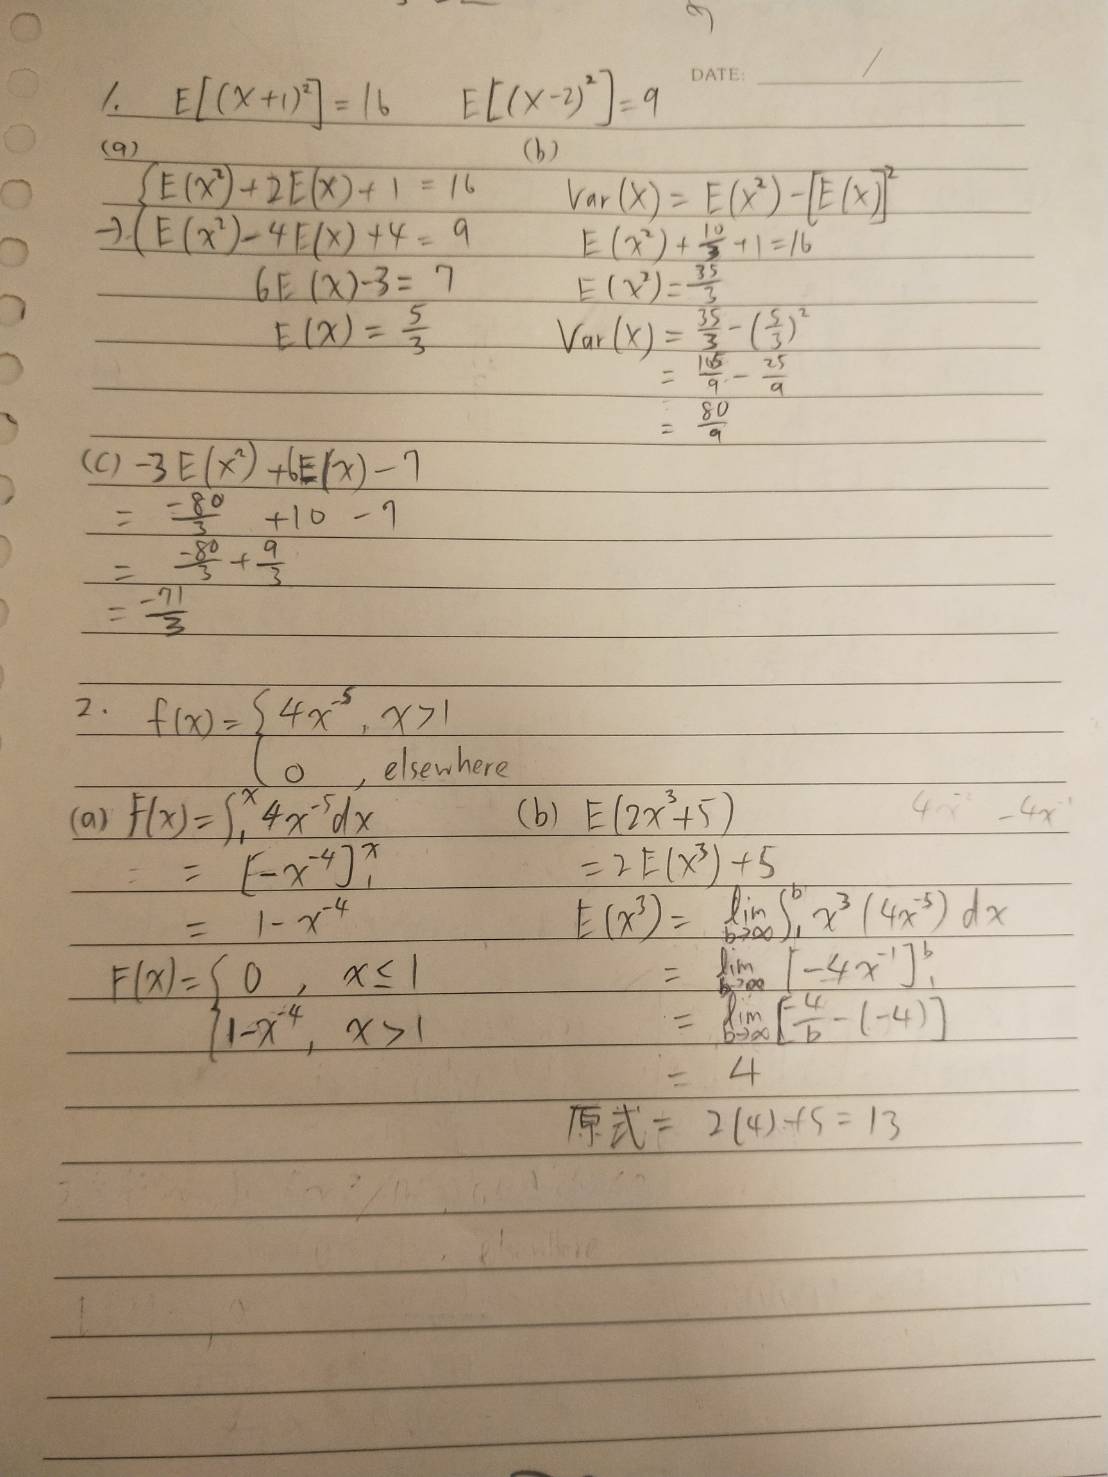 DATE: /
1. E[(X+1)²]=16 E[(X-2)²]=9
(a)
{E(x²)+2E(x)+1=16
-){E(x²)-4E(x)+4=9
6E(x)-3=7
E(x)=5/3
(b)
Var(X)=E(x²)-[E(x)]²
E(x²)+10/3+1=16
E(x²)=35/3
Var(X)=35/3-(5/3)²
=105/9-25/9
=80/9
(C) -3E(x²)+6E(x)-7
=-80/3+10-7
=-80/3+9/3
=-71/3
2. f(x)={4x⁻⁵, x>1
0, elsewhere
(a) F(x)=∫₁ˣ4x⁻⁵dx
=[-x⁻⁴]₁ˣ
=1-x⁻⁴
F(x)={0, x≤1
1-x⁻⁴, x>1
(b) E(2x³+5)
=2E(x³)+5
E(x³)=lim b→∞ ∫₁ᵇ x³(4x⁻⁵)dx
=lim b→∞ [-4x⁻¹]₁ᵇ
=lim b→∞ [-4/b-(-4)]
=4
原式=2(4)+5=13